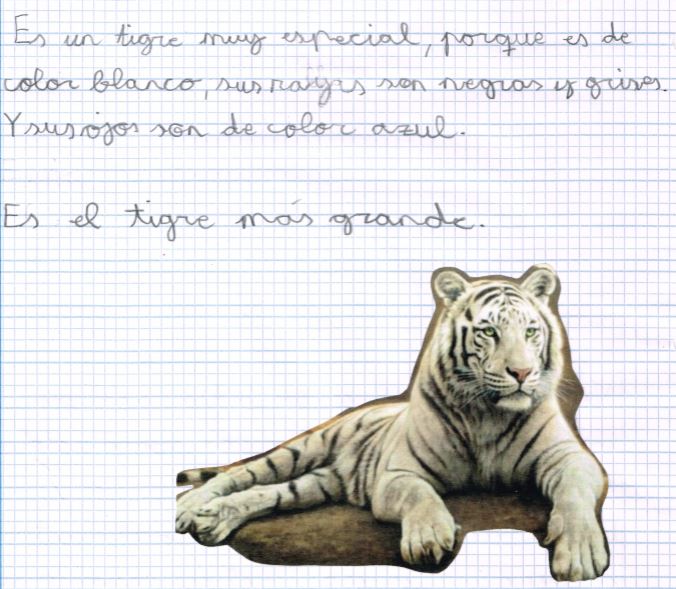 Es un tigre muy especial, porque es de
color blanco, sus rayas son negras y grises.
Y sus ojos son de color azul.
Es el tigre más grande.